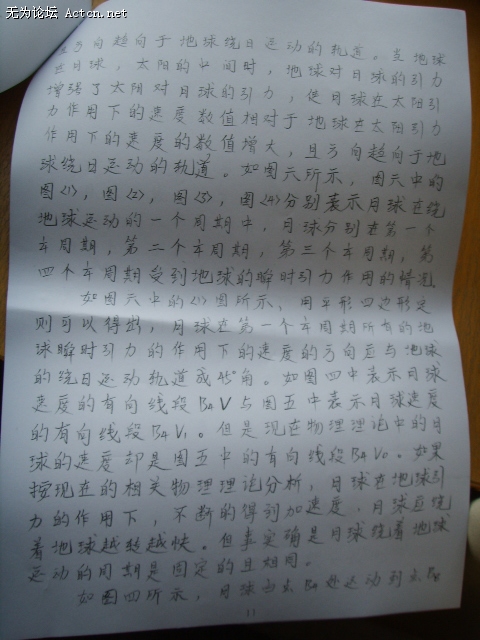 无为论坛 Actcn.net
且方向趋向于地球绕日运动的轨道。当地球
在月球,太阳的中间时,地球对月球的引力
增强了太阳对月球的引力,使月球在太阳引
力作用下的速度数值相对于地球在太阳引力
作用下的速度的数值增大,且方向趋向于地
球绕日运动的轨道。如图六所示,图六中的
图<1>,图<2>,图<3>,图<4>分别表示月球在绕
地球运动的一个周期中,月球分别在第一个
1/4周期,第二个1/4周期,第三个1/4周期,第
四个1/4周期受到地球的瞬时引力作用的情况
如图六中的<1>图所示,用平形四边形定
则可以得出,月球在第一个1/4周期所有的地
球瞬时引力的作用下的速度的方向应与地球
的绕日运动轨道成45°角。如图四中表示月球
速度的有向线段B4V与图五中表示月球速度
的有向线段B4V1。但是现在物理理论中的月
球的速度却是图五中的有向线段B4V0。如果
按现在的相关物理理论分析,月球在地球引
力的作用下,不断的得到加速度,月球应绕
着地球越转越快。但事实确是月球绕着地球
运动的周期是固定的且相同。
如图四所示,月球由点B4处运动到点
11